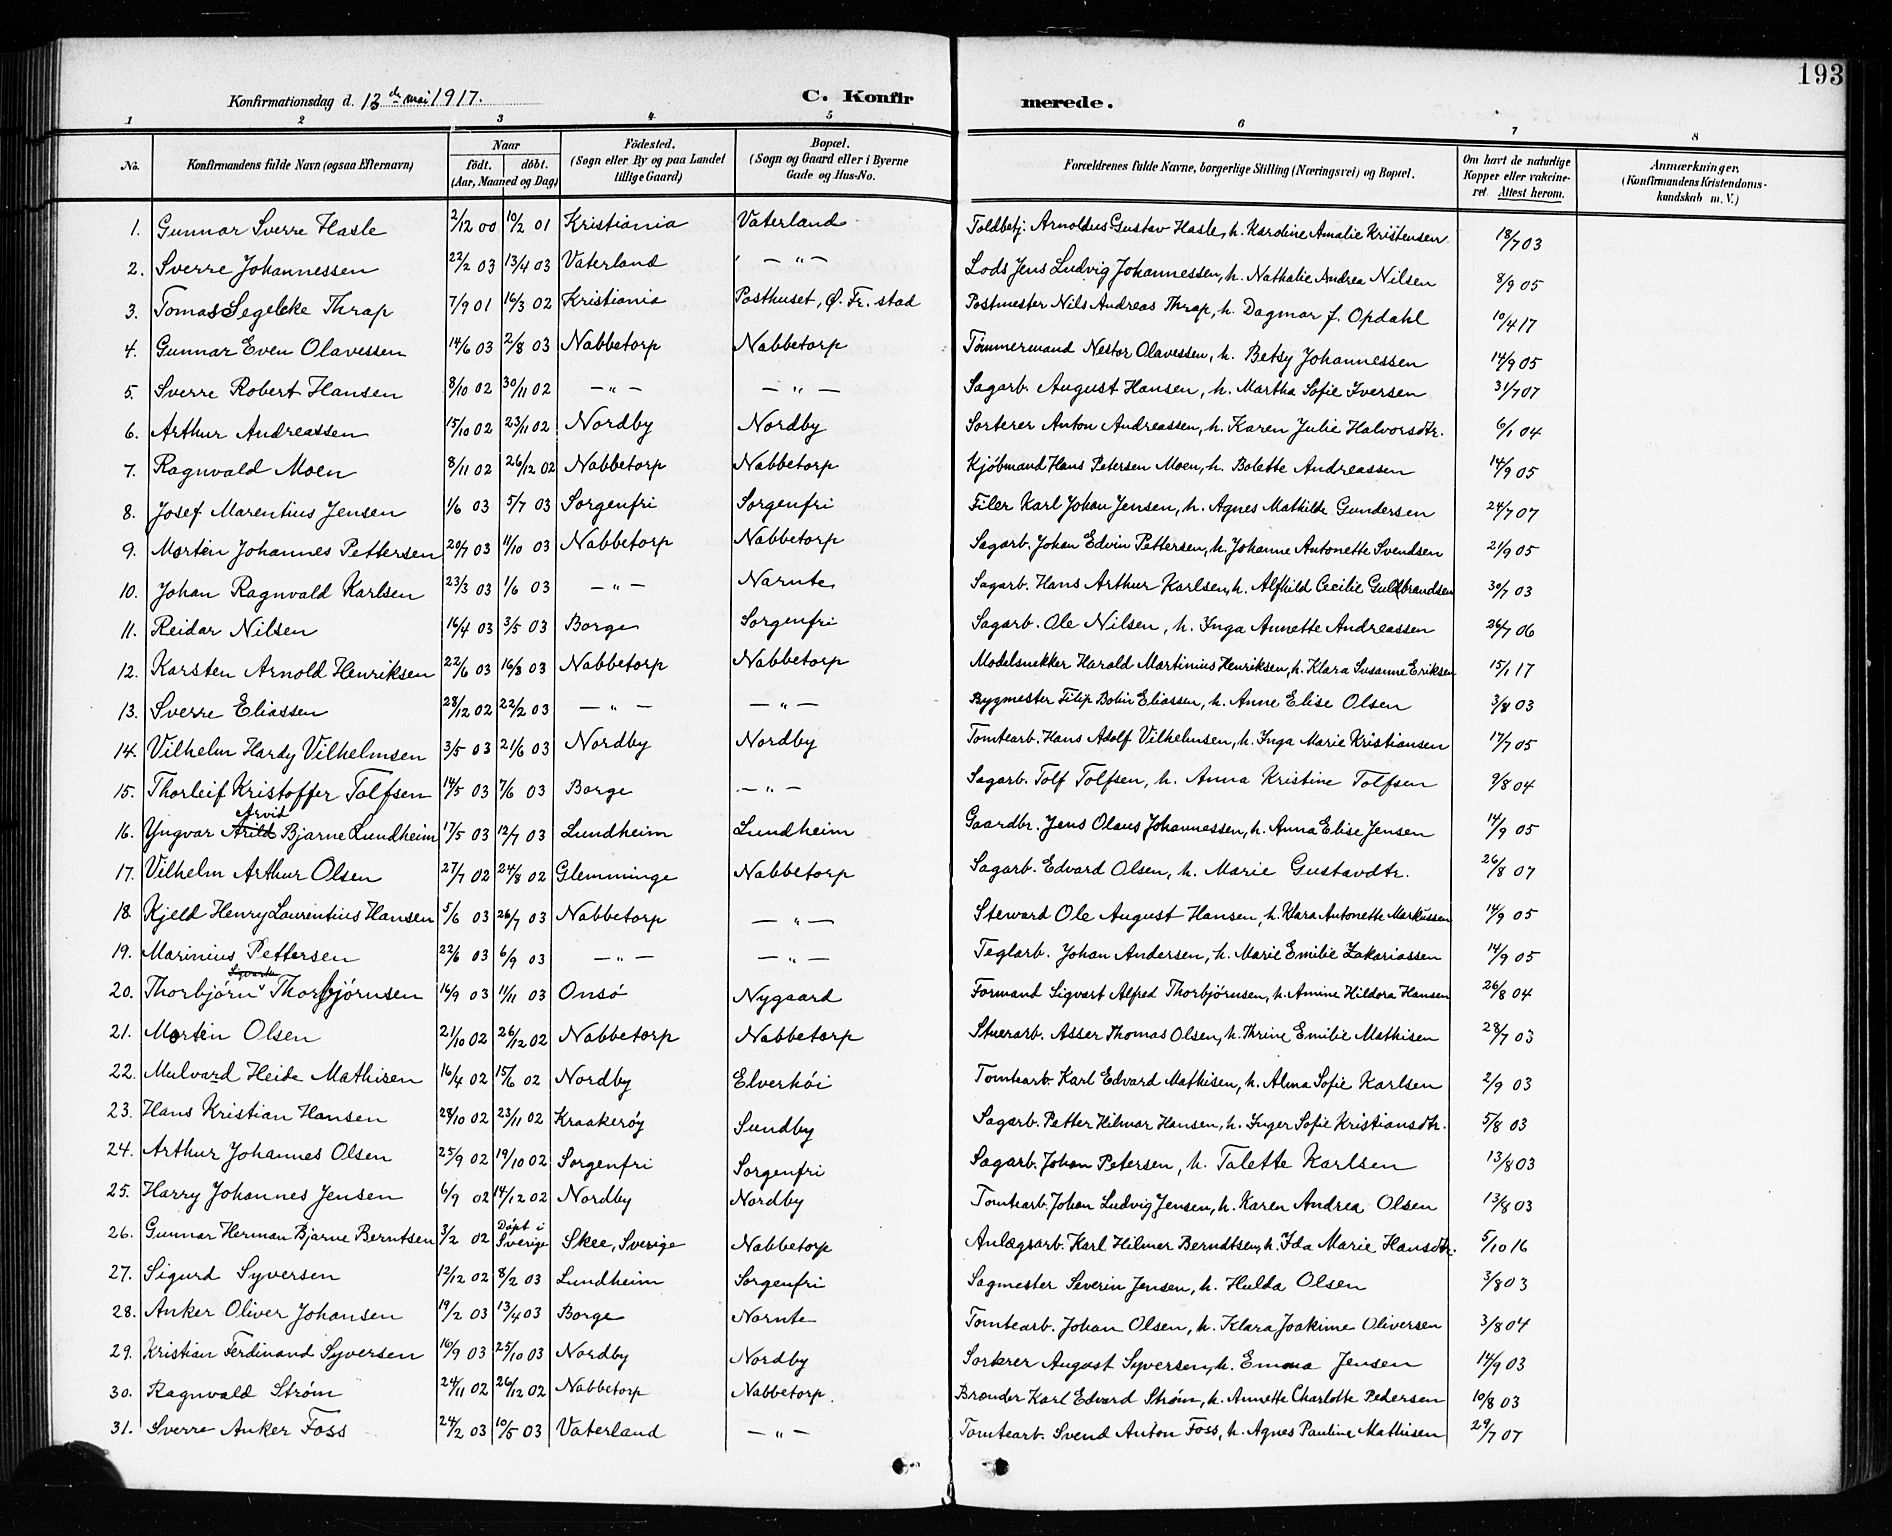 193
Konfirmationsdag d. 13de mai 1917.
C. Konfirmerede.
1 2 3 4 5 6 7 8
No. | Konfirmandens fulde Navn (ogsaa Efternavn) | Naar født. døbt. (Aar, Maaned og Dag) | Födested. (Sogn eller By og paa Landet tillige Gaard) | Bopæl. (Sogn og Gaard eller i Byerne Gade og Hus-No. | Forældrenes fulde Navne, borgerlige Stilling (Næringsvei) og Bopæl. | Om havt de naturlige Kopper eller vakcineret. Attest herom. | Anmærkninger. (Konfirmandens Kristendomskundskab m. V.)
1. Gunnar Sverre Hasle 2/12 00 10/2 01 Kristiania Vaterland Toldbetj. Arnoldus Gustav Hasle, h. Karoline Amalie Kristensen 18/7 03
2. Sverre Johannessen 22/2 03 13/4 03 Vaterland — " — Lods Jens Ludvig Johannessen, h. Nathalie Andrea Nilsen 8/9 05
3. Tomas Segelcke Thrap 7/9 01 16/3 02 Kristiania Posthuset, Ø. Fr.stad Postmester Nils Andreas Thrap, h. Dagmar f. Opdahl 10/4 17
4. Gunnar Even Olavessen 14/6 03 2/8 03 Nabbetorp Nabbetorp Tømmermand Nestor Olavessen, h. Betsy Johannessen 14/9 05
5. Sverre Robert Hansen 8/10 02 30/11 02 — " — — " — Sagarb. August Hansen, h. Martha Sofie Iversen 31/7 07
6. Arthur Andreassen 15/10 02 23/11 02 Nordby Nordby Sorterer Anton Andreassen, h. Karen Julie Halvorsdtr. 6/1 04
7. Ragnvald Moen 8/11 02 26/12 02 Nabbetorp Nabbetorp Kjøbmand Hans Petersen Moen, h. Bolette Andreassen 14/9 05
8. Josef Marentius Jensen 1/6 03 5/7 03 Sorgenfri Sorgenfri Filer Karl Johan Jensen, h. Agnes Mathilde Gundersen 24/7 07
9. Morten Johannes Pettersen 20/7 03 11/10 03 Nabbetorp Nabbetorp Sagarb. Johan Edvin Pettersen, h. Johanne Antonette Svendsen 21/9 05
10. Johan Ragnvald Karlsen 23/3 03 1/6 03 — " — Narnte Sagarb. Hans Arthur Karlsen, h. Alfhild Cecilie Guldbrandsen 30/7 03
11. Reidar Nilsen 16/4 03 3/5 03 Borge Sorgenfri Sagarb. Ole Nilsen, h. Inga Annette Andreassen 26/7 06
12. Karsten Arnold Henriksen 22/6 03 16/8 03 Nabbetorp Nabbetorp Modelsnekker Harald Martinius Henriksen, h. Klara Susanne Eriksen 15/1 17
13. Sverre Eliassen 28/12 02 22/2 03 — " — — " — Bygmester Filip Bolin Eliassen, h. Anne Elise Olsen 3/8 03
14. Vilhelm Hardy Vilhelmsen 3/5 03 21/6 03 Nordby Nordby Tomtearb. Hans Adolf Vilhelmsen, h. Inga Marie Kristiansen 17/7 05
15. Thorleif Kristoffer Tolfsen 14/5 03 7/6 03 Borge — " — Sagarb. Tolf Tolfsen, h. Anna Kristine Tolfsen 9/8 04
Arvid
16. Yngvar Arild Bjarne Lundheim 17/5 03 12/7 03 Lundheim Lundheim Gaardbr. Jens Olaus Johannessen, h. Anna Elise Jensen 14/9 05
17. Vilhelm Arthur Olsen 27/7 02 24/8 02 Glemminge Nabbetorp Sagarb. Edvard Olsen, h. Marie Gustavdtr. 26/8 07
18. Kjeld Henry Laurentius Hansen 5/6 03 26/7 03 Nabbetorp — " — Steward Ole August Hansen, h. Klara Antonette Markussen 14/9 05
19. Marinius Pettersen 22/6 03 6/9 03 — " — — " — Teglarb. Johan Andersen, h. Marie Emilie Zakariassen 14/9 05
20. Thorbjørn Thorbjørnsen 16/9 03 11/11 03 Onsö Nygaard Formand Sigvart Alfred Thorbjørnsen, h. Amine Hildora Hansen 26/8 04
21. Morten Olsen 21/10 02 26/12 02 Nabbetorp Nabbetorp Stuerarb. Asser Thomas Olsen, h. Thrine Emilie Mathisen 28/7 03
22. Mulvard Heide Mathisen 16/4 02 15/6 02 Nordby Elverhöi Tomtearb. Karl Edvard Mathisen, h. Alma Sofie Karlsen 2/9 03
23. Hans Kristian Hansen 28/10 02 23/11 02 Kraakeröy Sundby Sagarb. Petter Hilmar Hansen, h. Inger Sofie Kristiansdtr. 5/8 03
24. Arthur Johannes Olsen 25/9 02 19/10 02 Sorgenfri Sorgenfri Sagarb. Johan Petersen, h. Talette Karlsen 13/8 03
25. Harry Johannes Jensen 6/9 02 14/12 02 Nordby Nordby Tomtearb. Johan Ludvig Jensen, h. Karen Andrea Olsen 13/8 03
26. Gunnar Herman Bjarne Berntsen 3/2 02 Döpt i Sverige Skee, Sverige Nabbetorp Anlægsarb. Karl Hilmer Berndtsen, h. Ida Marie Hansdtr. 5/10 16
27. Sigurd Syversen 12/12 02 8/2 03 Lundheim Sorgenfri Sagmester Severin Jensen, h. Hulda Olsen 3/8 03
28. Anker Oliver Johansen 19/2 03 13/4 03 Borge Narnte Tomtearb. Johan Olsen, h. Klara Joakime Oliversen 3/8 04
29. Kristian Ferdinand Syversen 16/9 03 25/10 03 Nordby Nordby Sorterer August Syversen, h. Emma Jensen 14/9 03
30. Ragnvald Strøm 24/11 02 26/12 02 Nabbetorp Nabbetorp. Brænder Karl Edvard Strøm, h. Annette Charlotte Pedersen 10/8 03
31. Sverre Anker Foss 24/2 03 10/5 03 Vaterland — " — Tomtearb. Svend Anton Foss, h. Agnes Pauline Mathisen 29/7 07